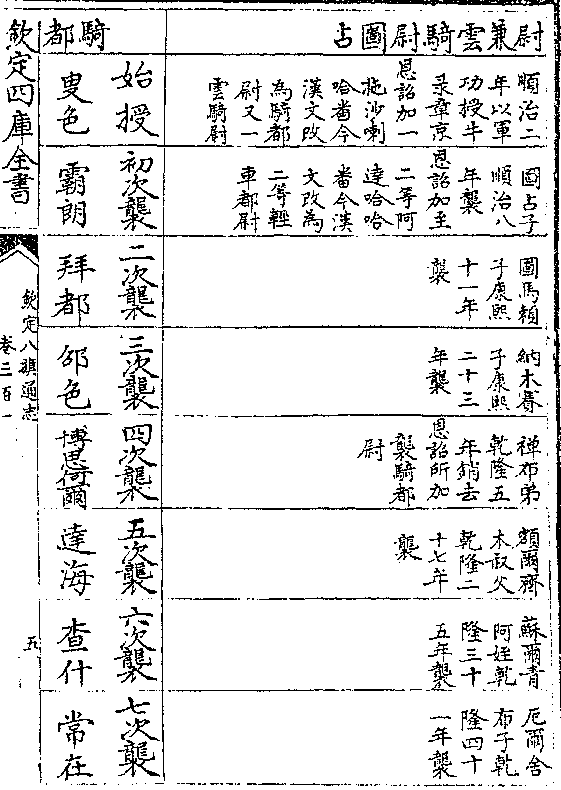 尉兼雲騎尉圖占
順治二
年以軍
功授牛
录章京
恩詔加一
拖沙喇
哈番今
漢文改
為騎都
尉又一
雲騎尉
圖占子
順治八
年襲
恩詔加至
二等阿
達哈哈
番今漢
文改為
二等輕
車都尉
圖馬賴
子康熙
十一年
襲
納木賽
子康熙
二十三
年襲
禪布弟
乾隆五
年銷去
恩詔所加
襲騎都
尉
額爾齊
木叔父
乾隆二
十七年
襲
蘇爾青
阿姪乾
隆三十
五年襲
厄爾舍
布子乾
隆四十
一年襲
騎都
始授
叟色
初次襲
霸朗
二次襲
拜都
三次襲
邠色
四次襲
博思荷爾
五次襲
達海
六次襲
查什
七次襲
常在
欽定四庫全書
欽定八旗通志
卷三百一
五